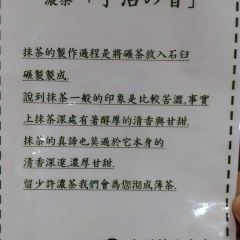 濃茶「宇治の昔」
抹茶的製作過程是將碾茶放入石臼
碾製製成.
說到抹茶一般的印象是比較苦澀,事實
上抹茶深處有著醇厚的清香與甘甜.
抹茶的真諦也莫過於它本身的
清香深邃,濃厚甘甜.
留少許濃茶我們會為您沏成薄茶.